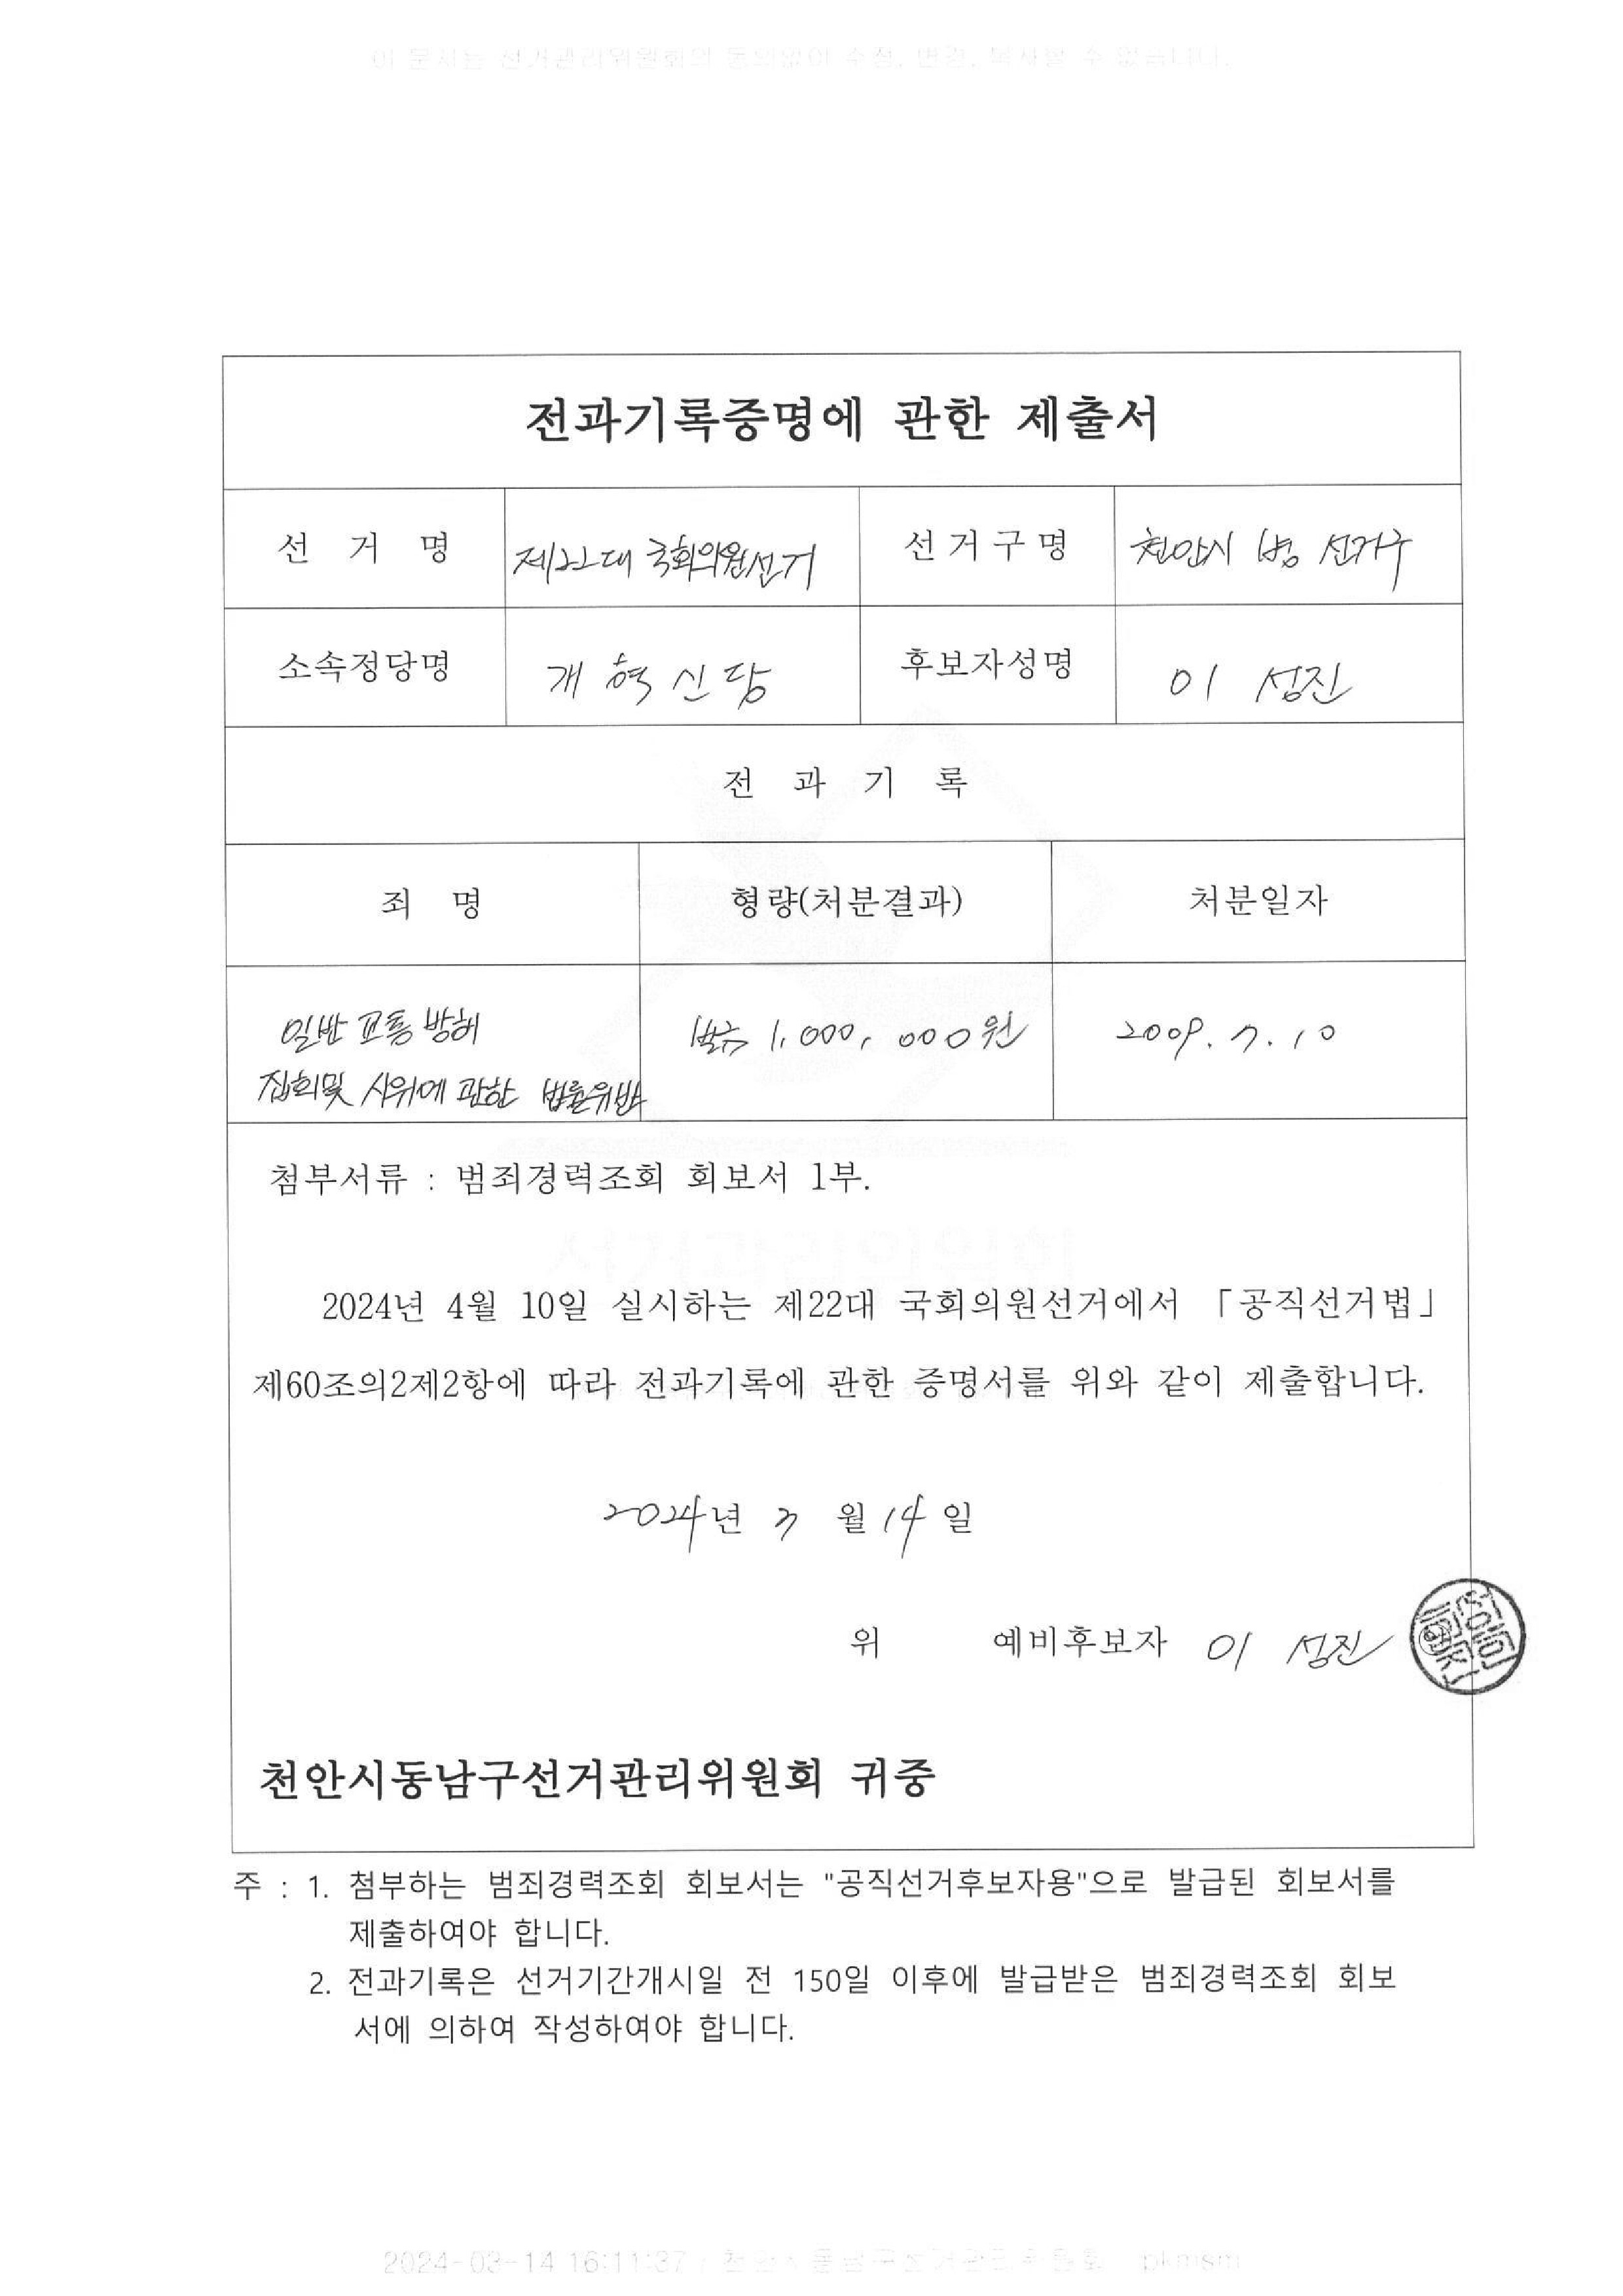 이 문서는 선거관리위원회의 동의없이 수정, 변경, 복사할 수 없습니다.
전과기록증명에 관한 제출서
선 거 명 제22대 국회의원선거 선거구명 천안시 병 선거구
소속정당명 개혁신당 후보자성명 이 성진
전 과 기 록
죄 명 형량(처분결과) 처분일자
일반교통방해 벌금 1,000,000원 2009. 7. 10
집회및 시위에 관한 법률위반
첨부서류 : 범죄경력조회 회보서 1부.
2024년 4월 10일 실시하는 제22대 국회의원선거에서 「공직선거법」
제60조의2제2항에 따라 전과기록에 관한 증명서를 위와 같이 제출합니다.
2024년 3 월 14 일
위 예비후보자 이 성진
천안시동남구선거관리위원회 귀중
주 : 1. 첨부하는 범죄경력조회 회보서는 "공직선거후보자용"으로 발급된 회보서를
제출하여야 합니다.
2. 전과기록은 선거기간개시일 전 150일 이후에 발급받은 범죄경력조회 회보
서에 의하여 작성하여야 합니다.
2024-03-14 16:11:37